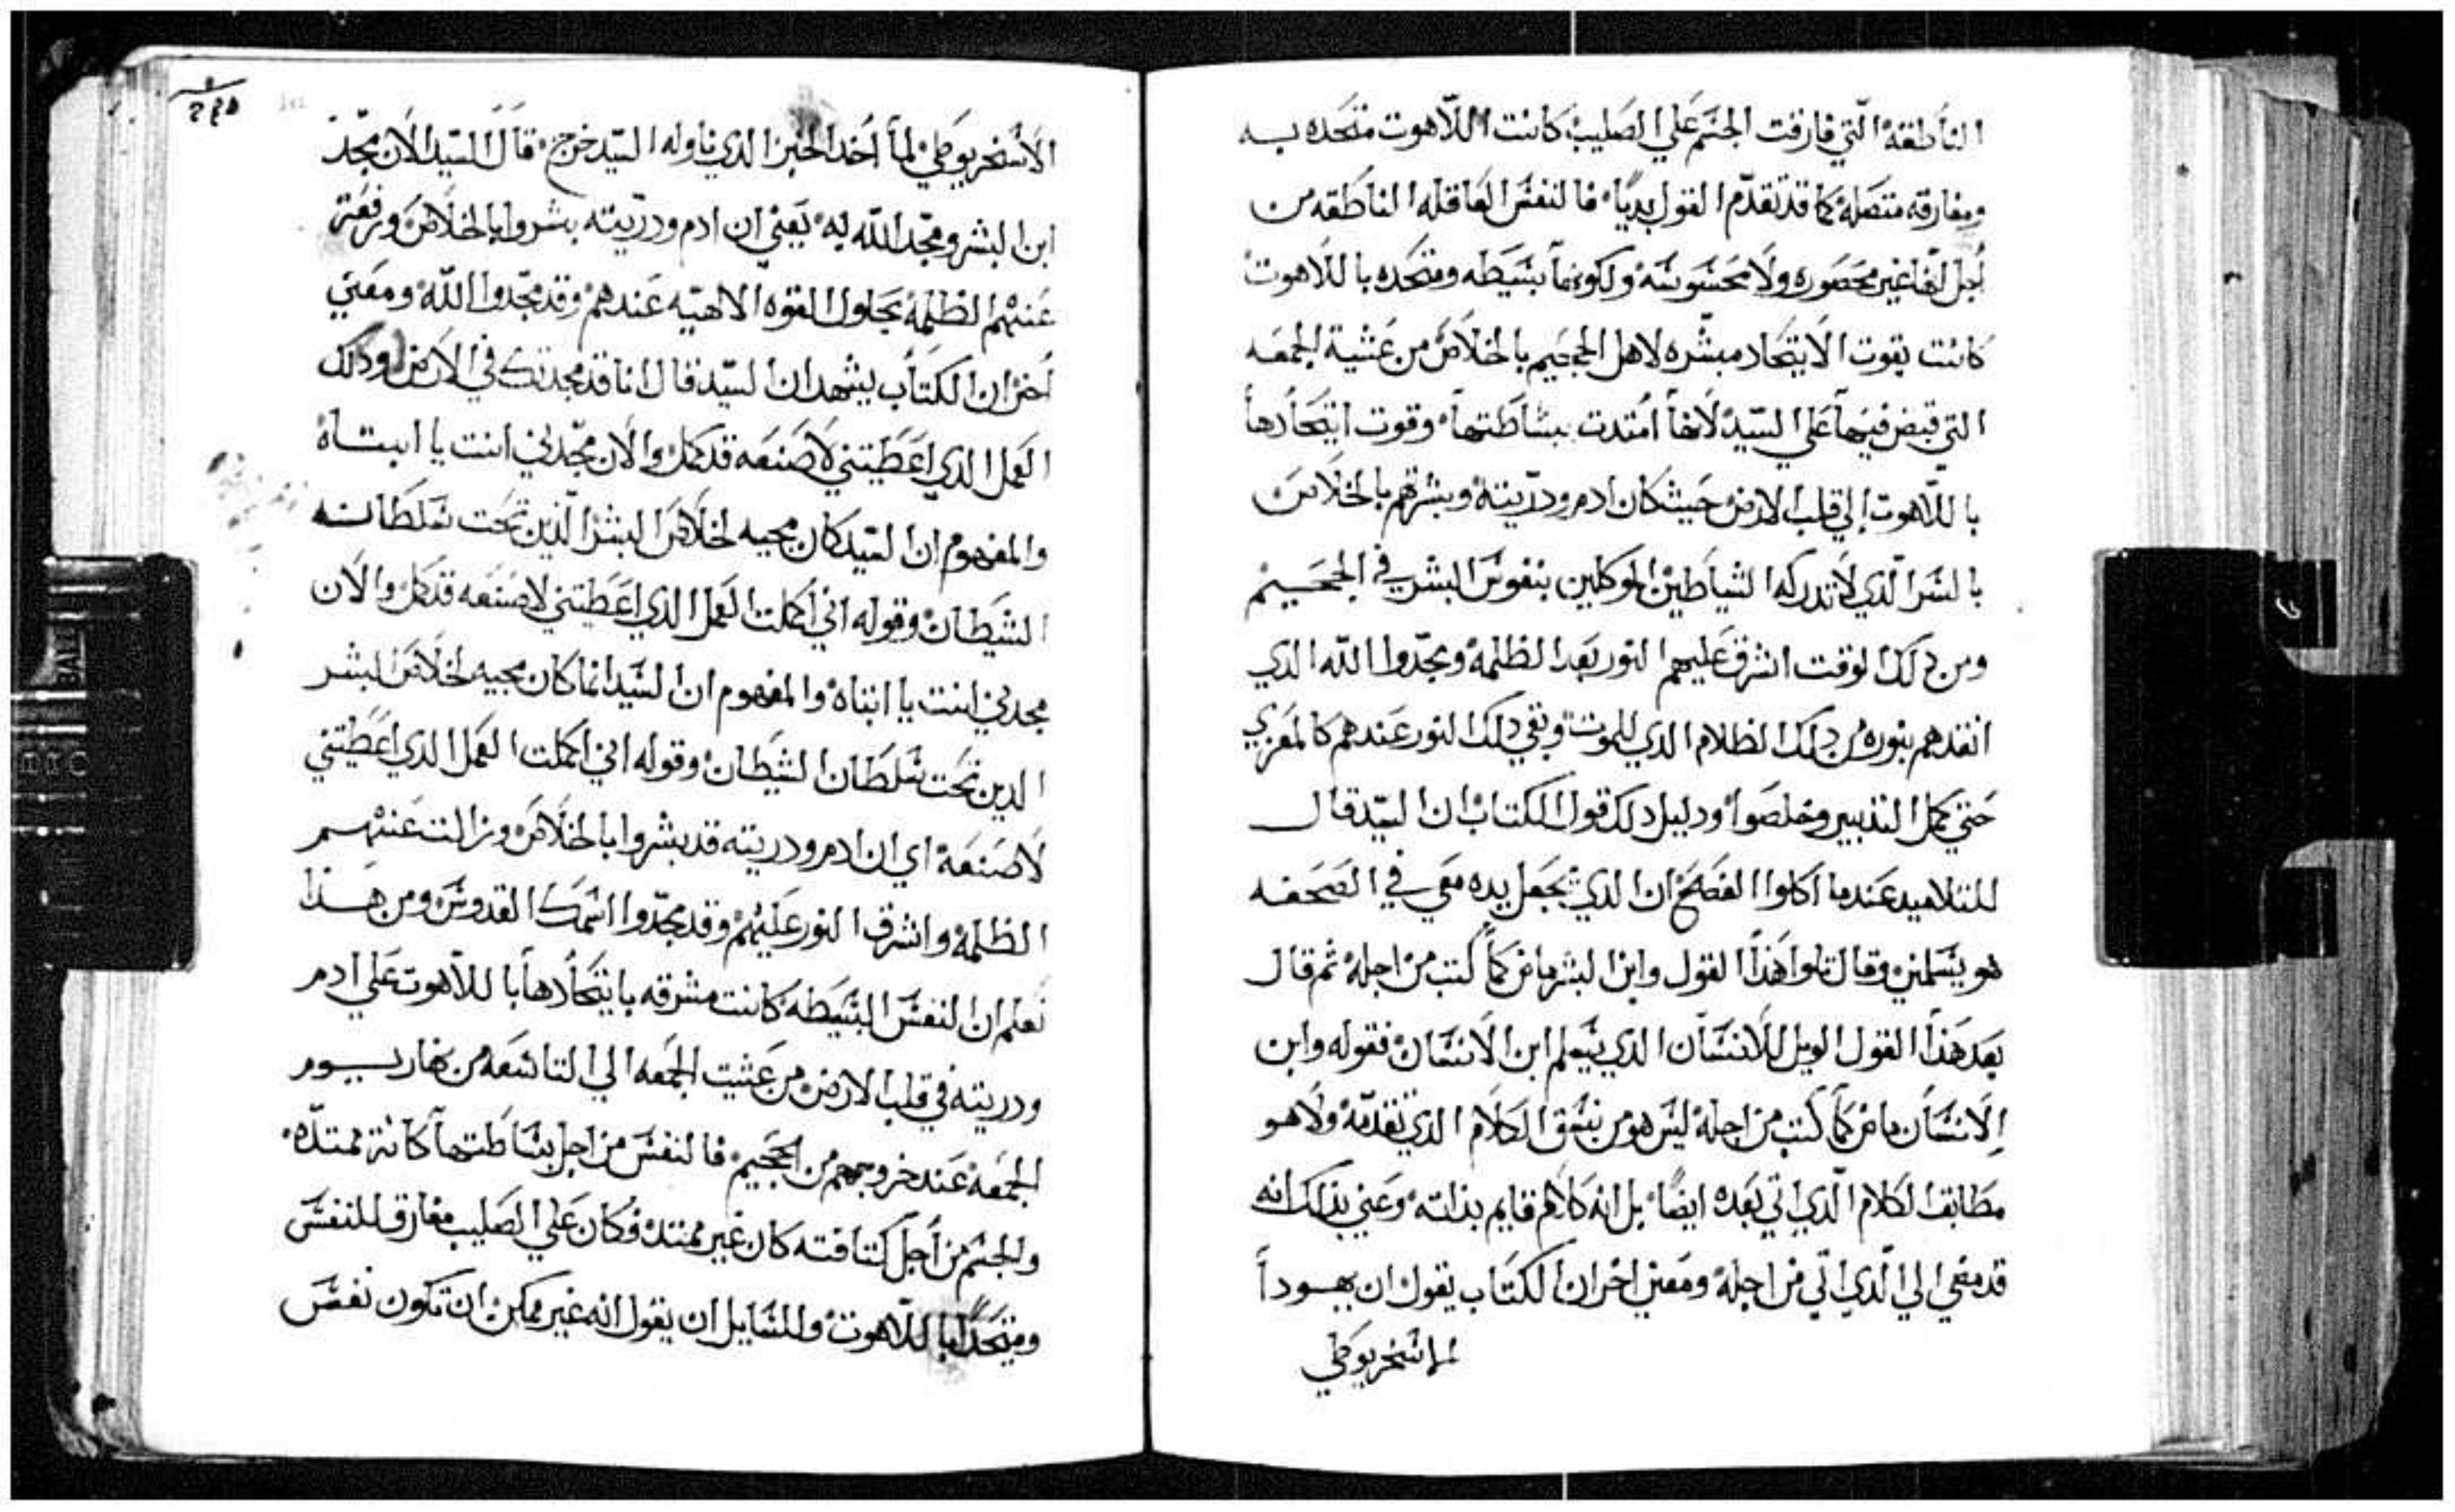 الناطقه التي فارقت الجسم علي الصليب كانت اللاهوت متحده به
ومفارقه متصله كما قد تقدم القول بديا فالنفس العاقله الناطقه من
اجل انها غير محصوره ولا محسوسه ولكونها بسيطه ومتحده باللاهوت
كانت بقوت الايتحاد مبشره لاهل الجحيم بالخلاص من عشية الجمعه
التي قبض فيها علي السيد لانها امتدت ببساطتها وقوت ايتحادها
باللاهوت الي قلب الارض حيث كان ادم ودريته وبشرتهم بالخلاص
بالسر الذي لا تدركه الشياطين الموكلين بنفوس البشر في الجحيم
ومن ذلك الوقت اشرق عليهم النور بعد الظلمه ومجدوا الله الدي
انقدهم بنوره من دلك الظلام الدي للموت وبقي دلك النور عندهم كالمعزي
حتي كمل التدبير وخلصوا ودليل دلك قول الكتاب ان السيد قال
للتلاميد عندما اكلوا الفصح ان الدي يجعل يده معي في الصحفه
هو يسلمني وقال تلوا هذا القول وابن البشر ماض كما كتب من اجله ثم قال
بعد هذا القول الويل للانسان الدي يسلم ابن الانسان فقوله وابن
الانسان ماض كما كتب من اجله ليس هو من نسق الكلام الدي تقدمه ولا هو
مطابقا لكلام الذي اتي بعده ايضا بل انه كلام قايم بذاته وعني بذلك انه
قد مضي الي الذي اتي من اجله ومعني اخر ان الكتاب يقول ان يهودا
الاسخريوطي
الاسخريوطي لما اخد الخبز الدي ناوله السيد خرج قال السيد الان مجد
ابن البشر ومجد الله به يعني ان ادم ودريته بشروا بالخلاص ورفعت
عنهم الظلمه بحلول القوه الالاهيه عندهم وقد مجدوا الله ومعني
اخر ان الكتاب يشهد ان السيد قال انا قد مجدتك في الارض ودلك
العمل الدي اعطيتني لاصنعه قد كمل والان مجدني انت يا ابتاه
والمفهوم ان السيد كان مجيه لخلاص البشر الذين تحت سلطانه
الشيطان وقوله اني اكملت العمل الدي اعطيتني لاصنعه قد كمل والان
مجدني انت يا ابتاه والمفهوم ان السيد انما كان مجيه لخلاص البشر
الدين تحت سلطان الشيطان وقوله اني اكملت العمل الدي اعطيتني
لاصنعه اي ان ادم ودريته قد بشروا بالخلاص وزالت عنهم
الظلمه واشرق النور عليهم وقد مجدوا اسمك القدوس ومن هذا
نعلم ان النفس البسيطه كانت مشرقه بايتحادها باللاهوت علي ادم
ودريته في قلب الارض من عشيت الجمعه الي التاسعه من نهار يوم
الجمعه عند خروجهم من الجحيم فالنفس من اجل بساطتها كانة ممتده
والجسم من اجل كتافته كان غير ممتد فكان علي الصليب مفارق للنفس
ومتحدا باللاهوت وللسايل ان يقول انه غير ممكن ان تكون نفس